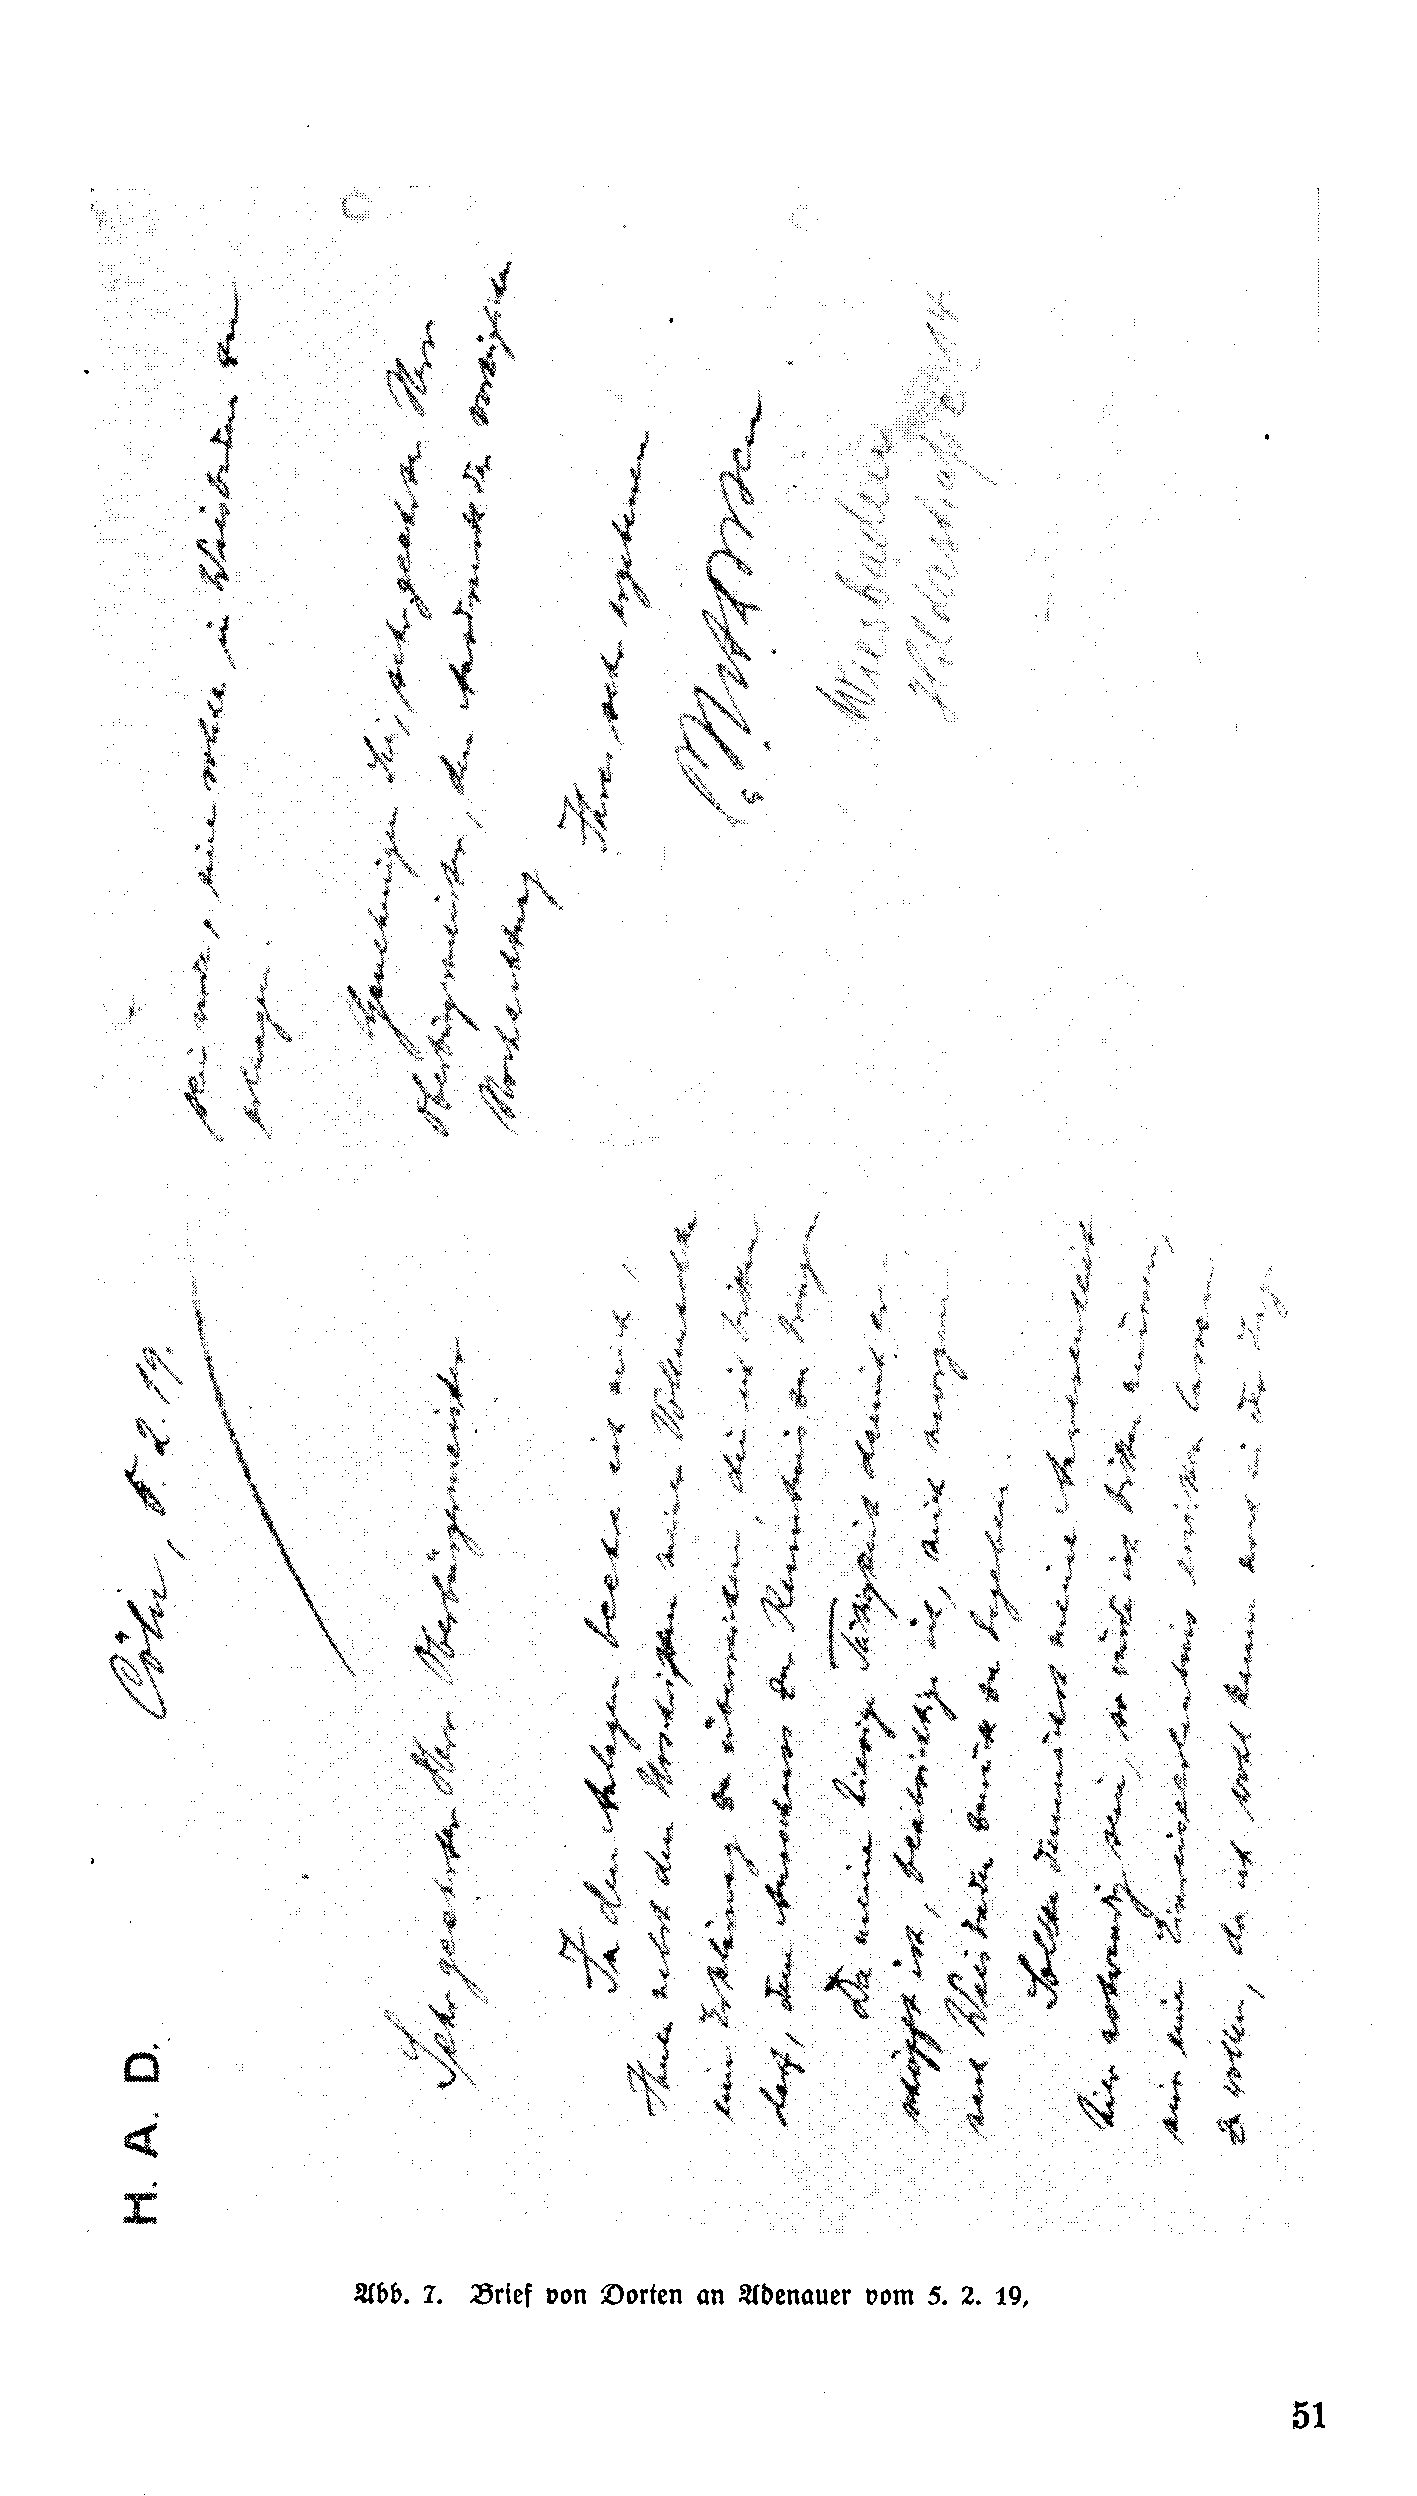 H. A. D.
Cöln, 5. 2. 19.
Sehr geehrter Herr Oberbürgermeister
In den Anlagen beehre ich mich,
Ihnen nebst den Vorschriften meine Vollmacht
eine Erklärung zu überreichen, die ich bitten
darf, dem Ausschuss zur Kenntnis zu bringen
Da meine hiesige Tätigkeit damit er-
schöpft ist, beabsichtige ich, mich morgen
nach Wiesbaden zurück zu begeben.
Sollte demnächst meine Anwesenheit
hier notwendig sein, so würde ich bitten müssen,
mir eine Einreiseerlaubnis erwirken lassen
zu wollen, da ich wohl kaum noch in der Lage
sein werde, eine solche, in Wiesbaden zu
erlangen.
Genehmigen Sie, sehr geehrter Herr
Oberbürgermeister, den Ausdruck der vorzüglichen
Hochachtung
Ihres sehr ergebenen
Dorten
Wiesbaden
Hildastraße 14
Abb. 7. Brief von Dorten an Adenauer vom 5. 2. 19.
51